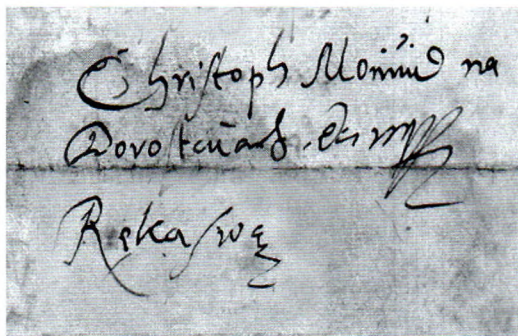 Christoph Moniuid na
Dorostaiach
Ręka swą